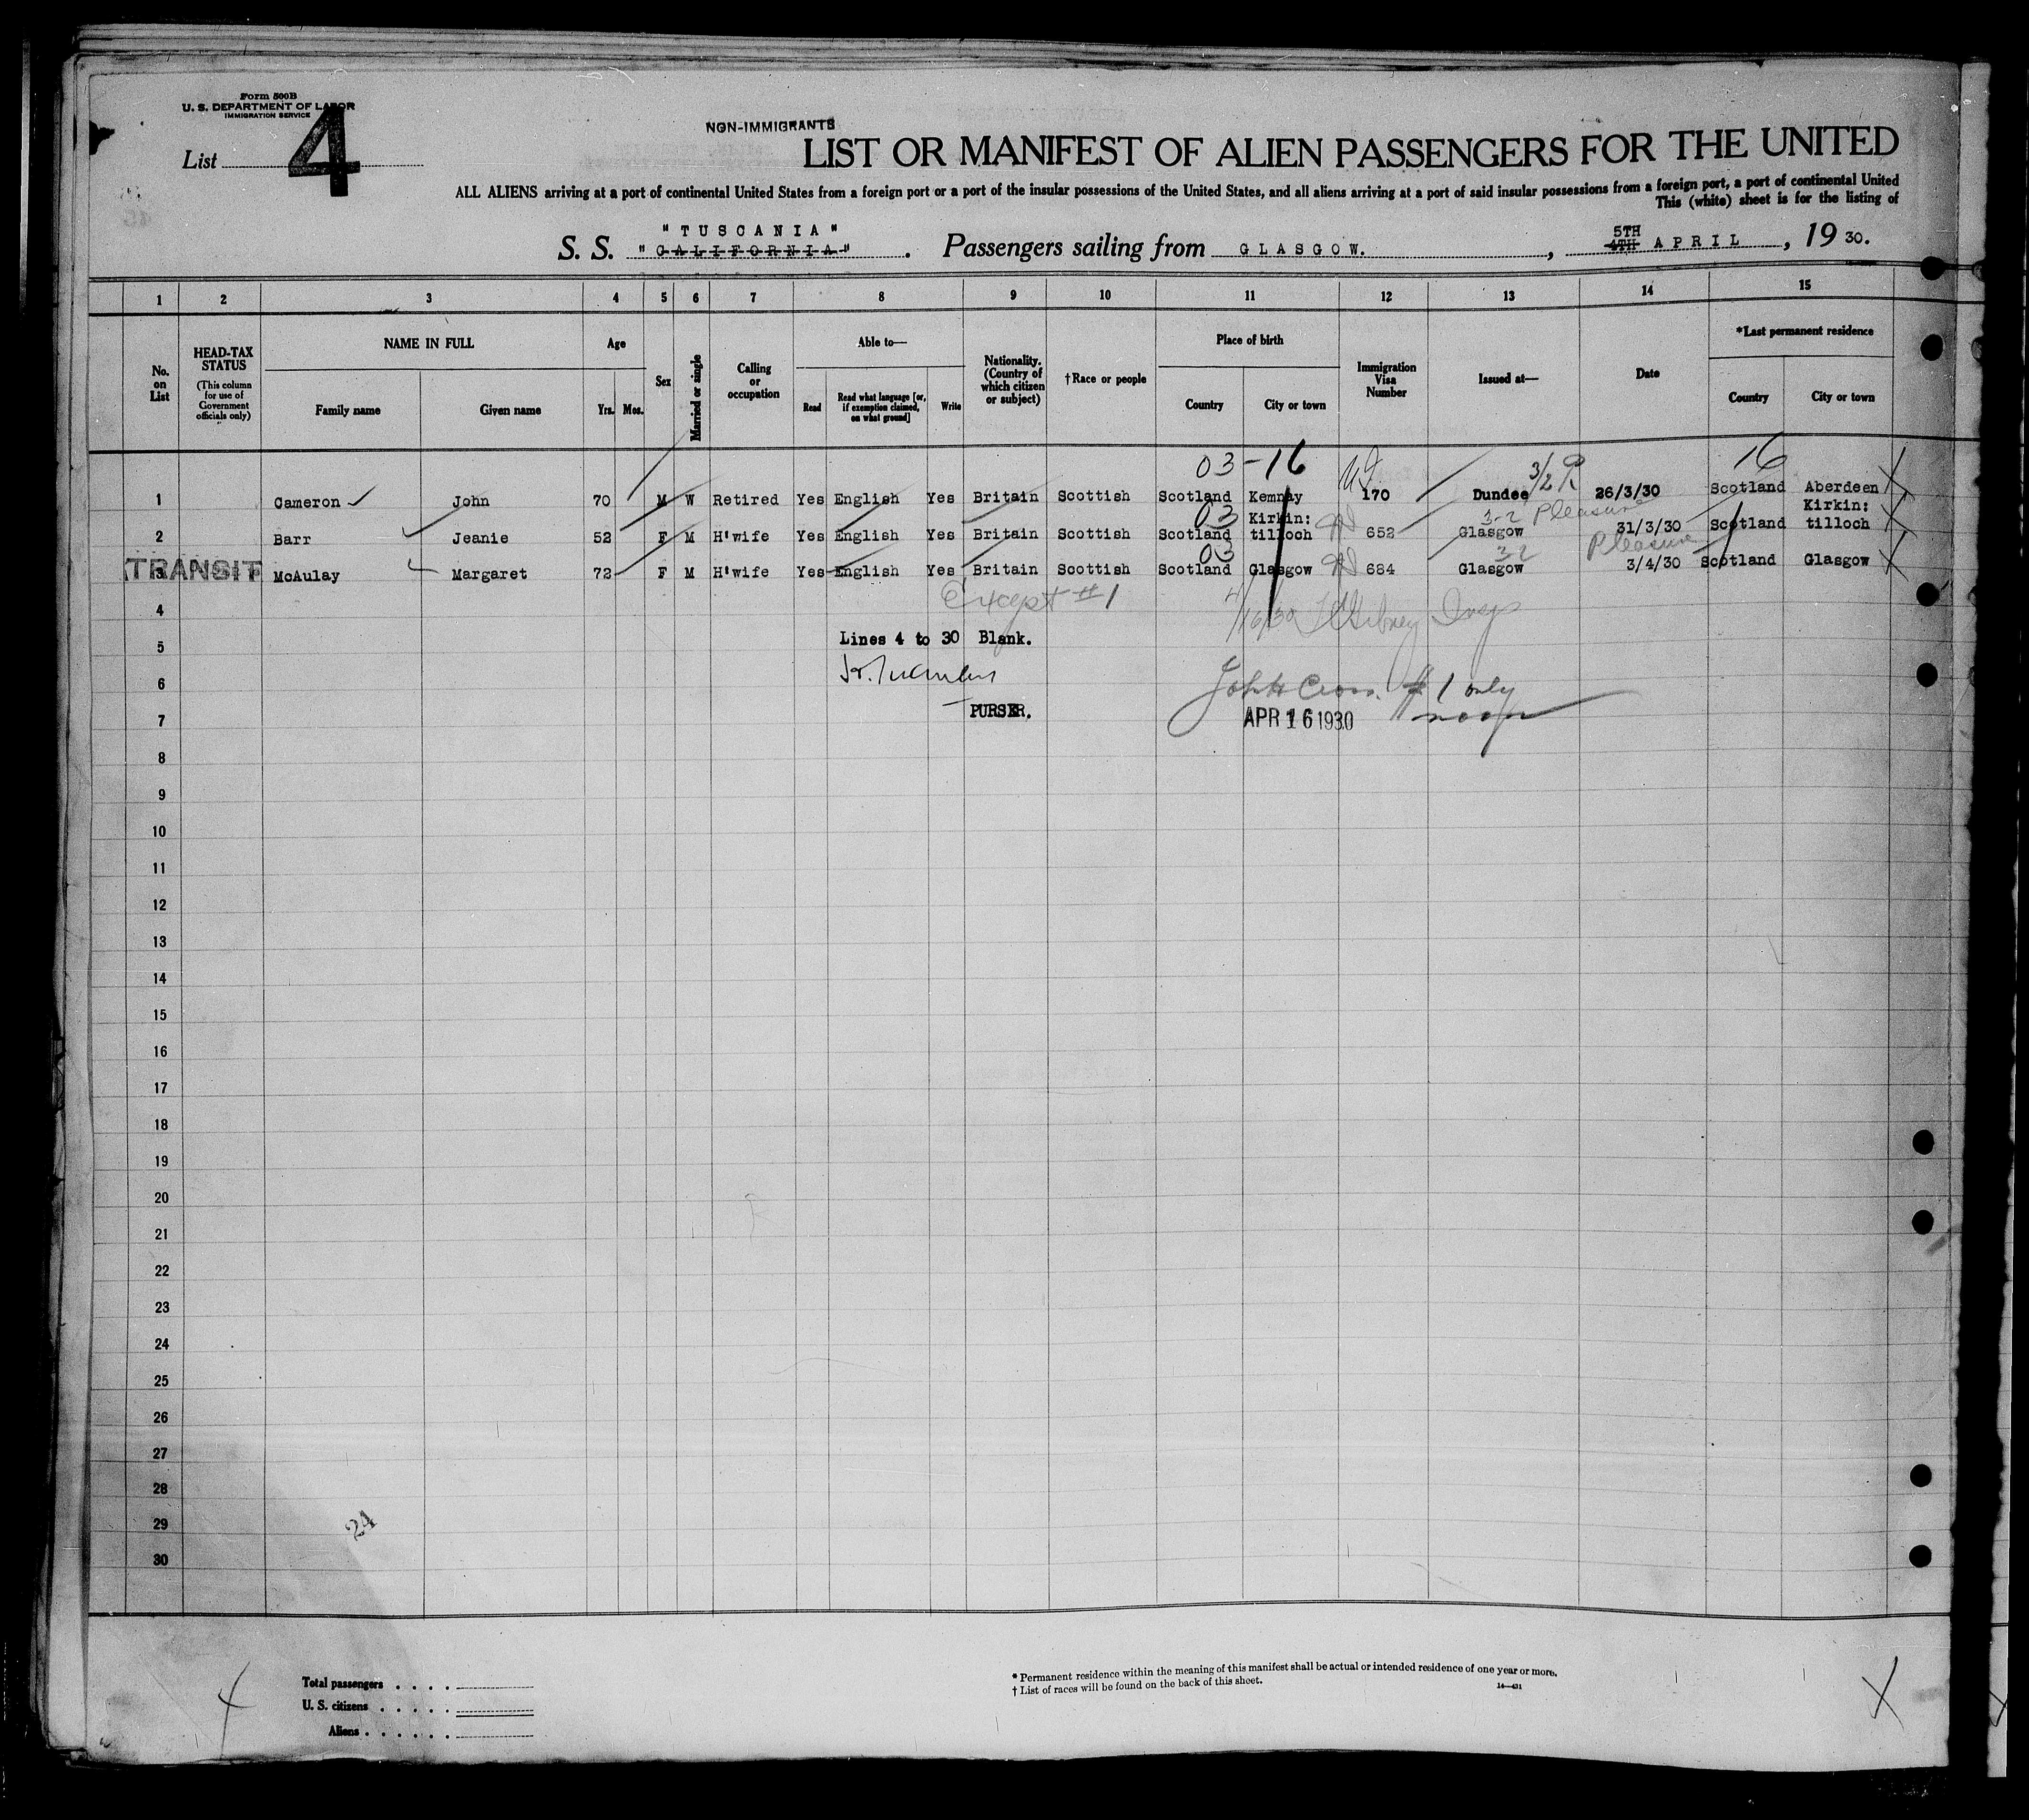 Form 500B
U. S. DEPARTMENT OF LABOR
IMMIGRATION SERVICE
List 4
NON-IMMIGRANTS
LIST OR MANIFEST OF ALIEN PASSENGERS FOR THE UNITED
ALL ALIENS arriving at a port of continental United States from a foreign port or a port of the insular possessions of the United States, and all aliens arriving at a port of said insular possessions from a foreign port, a port of continental United
This (white) sheet is for the listing of
"TUSCANIA" 5TH
S. S. "CALIFORNIA". Passengers sailing from GLASGOW., 4TH APRIL, 1930.
1 2 3 4 5 6 7 8 9 10 11 12 13 14 15
No. on List
HEAD-TAX STATUS (This column for use of Government officials only)
NAME IN FULL
Family name Given name
Age
Yrs. Mos.
Sex
Married or single
Calling or occupation
Able to—
Read Read what language [or, if exemption claimed, on what ground] Write
Nationality. (Country of which citizen or subject)
†Race or people
Place of birth
Country City or town
Immigration Visa Number
Issued at—
Date
*Last permanent residence
Country City or town
03-16 3/2 P. 16
1 Cameron John 70 M W Retired Yes English Yes Britain Scottish Scotland Kemnay 170 Dundee 26/3/30 Scotland Aberdeen
03 Kirkin: 3-2 Pleasure Kirkin:
2 Barr Jeanie 52 F M H'wife Yes English Yes Britain Scottish Scotland tilloch 652 Glasgow 31/3/30 Scotland tilloch
03 3-2 Pleasure
TRANSIT McAulay Margaret 72 F M H'wife Yes English Yes Britain Scottish Scotland Glasgow 684 Glasgow 3/4/30 Scotland Glasgow
4 Except #1 4/16/30 Insp
5 Lines 4 to 30 Blank.
6 #1 only
7 PURSER. APR 16 1930
8
9
10
11
12
13
14
15
16
17
18
19
20
21
22
23
24
25
26
27
28
29
30
24
Total passengers
U. S. citizens
Aliens
4
* Permanent residence within the meaning of this manifest shall be actual or intended residence of one year or more.
† List of races will be found on the back of this sheet.
14—431
X